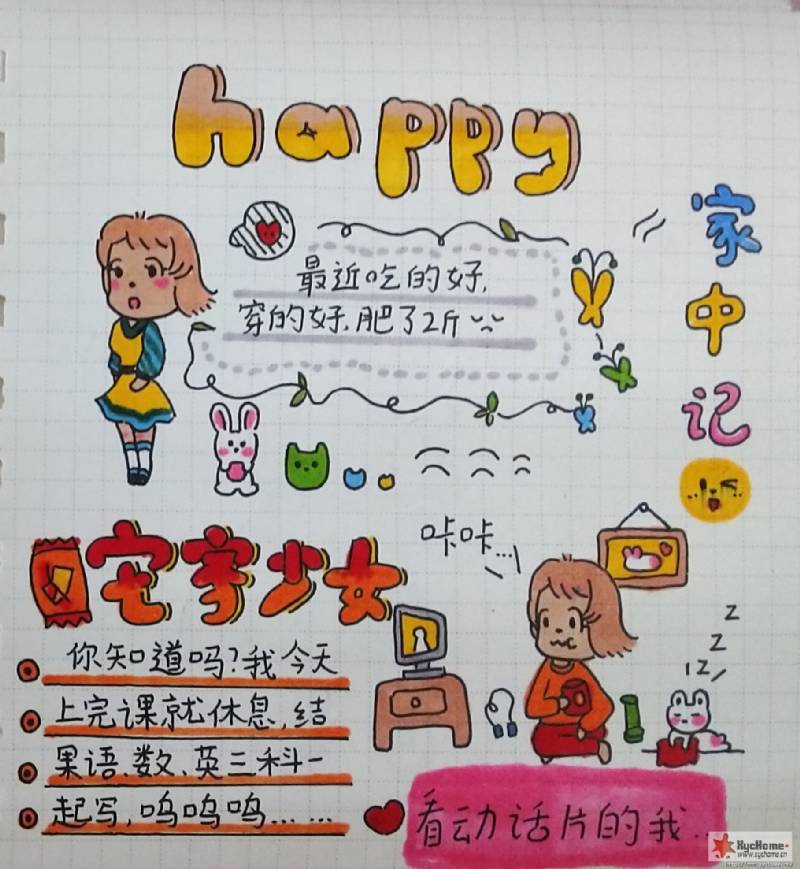 happy
家中记
最近吃的好,
穿的好.肥了2斤
宅家少女
咔咔...
z
z
z
你知道吗?我今天
上完课就休息,结
果语、数、英三科一
起写,呜呜呜......
看动话片的我...
XycHome
www.xychome.cn